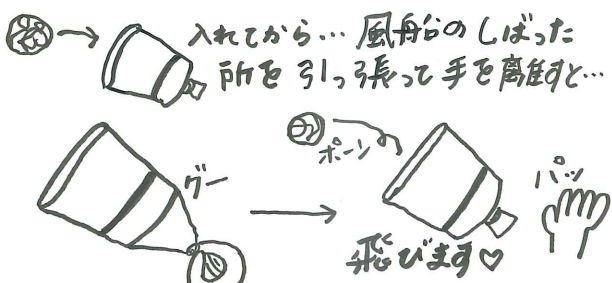 入れてから… 風船のしばった
所を引っ張って手を離すと…
グー
ポーン
パッ
飛びます♡